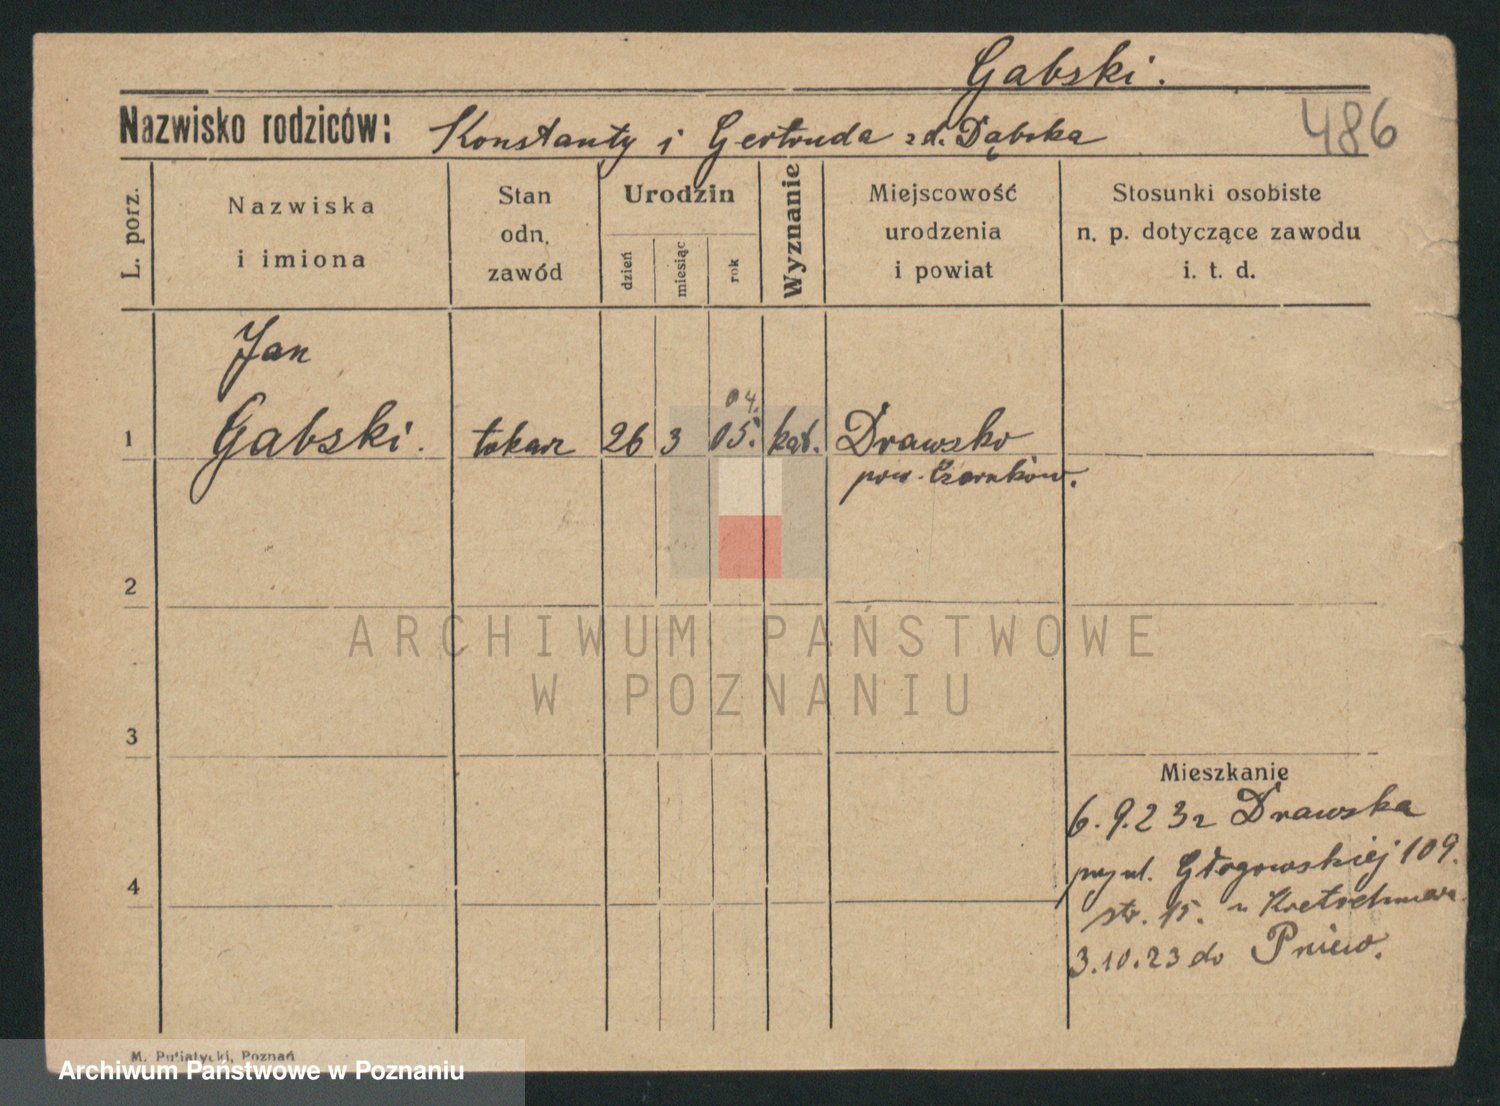 Gabski.
486
Nazwisko rodziców: Konstanty i Gertruda zd. Dąbska
L. porz.
Nazwiska
i imiona
Stan
odn.
zawód
Urodzin
dzień
miesiąc
rok
Wyznanie
Miejscowość
urodzenia
i powiat
Stosunki osobiste
n. p. dotyczące zawodu
i. t. d.
Jan
04.
1 Gabski. tokarz 26 3 05. kat. Drawsko
pow. Czarnków.
2
ARCHIWUM PAŃSTWOWE
W POZNANIU
3
Mieszkanie
6.9.23 z Drawska
4
przy ul. Głogowskiej 109.
str. 15. u Kretschmera
3.10.23 do Pniew.
M. Putiatycki, Poznań
Archiwum Państwowe w Poznaniu